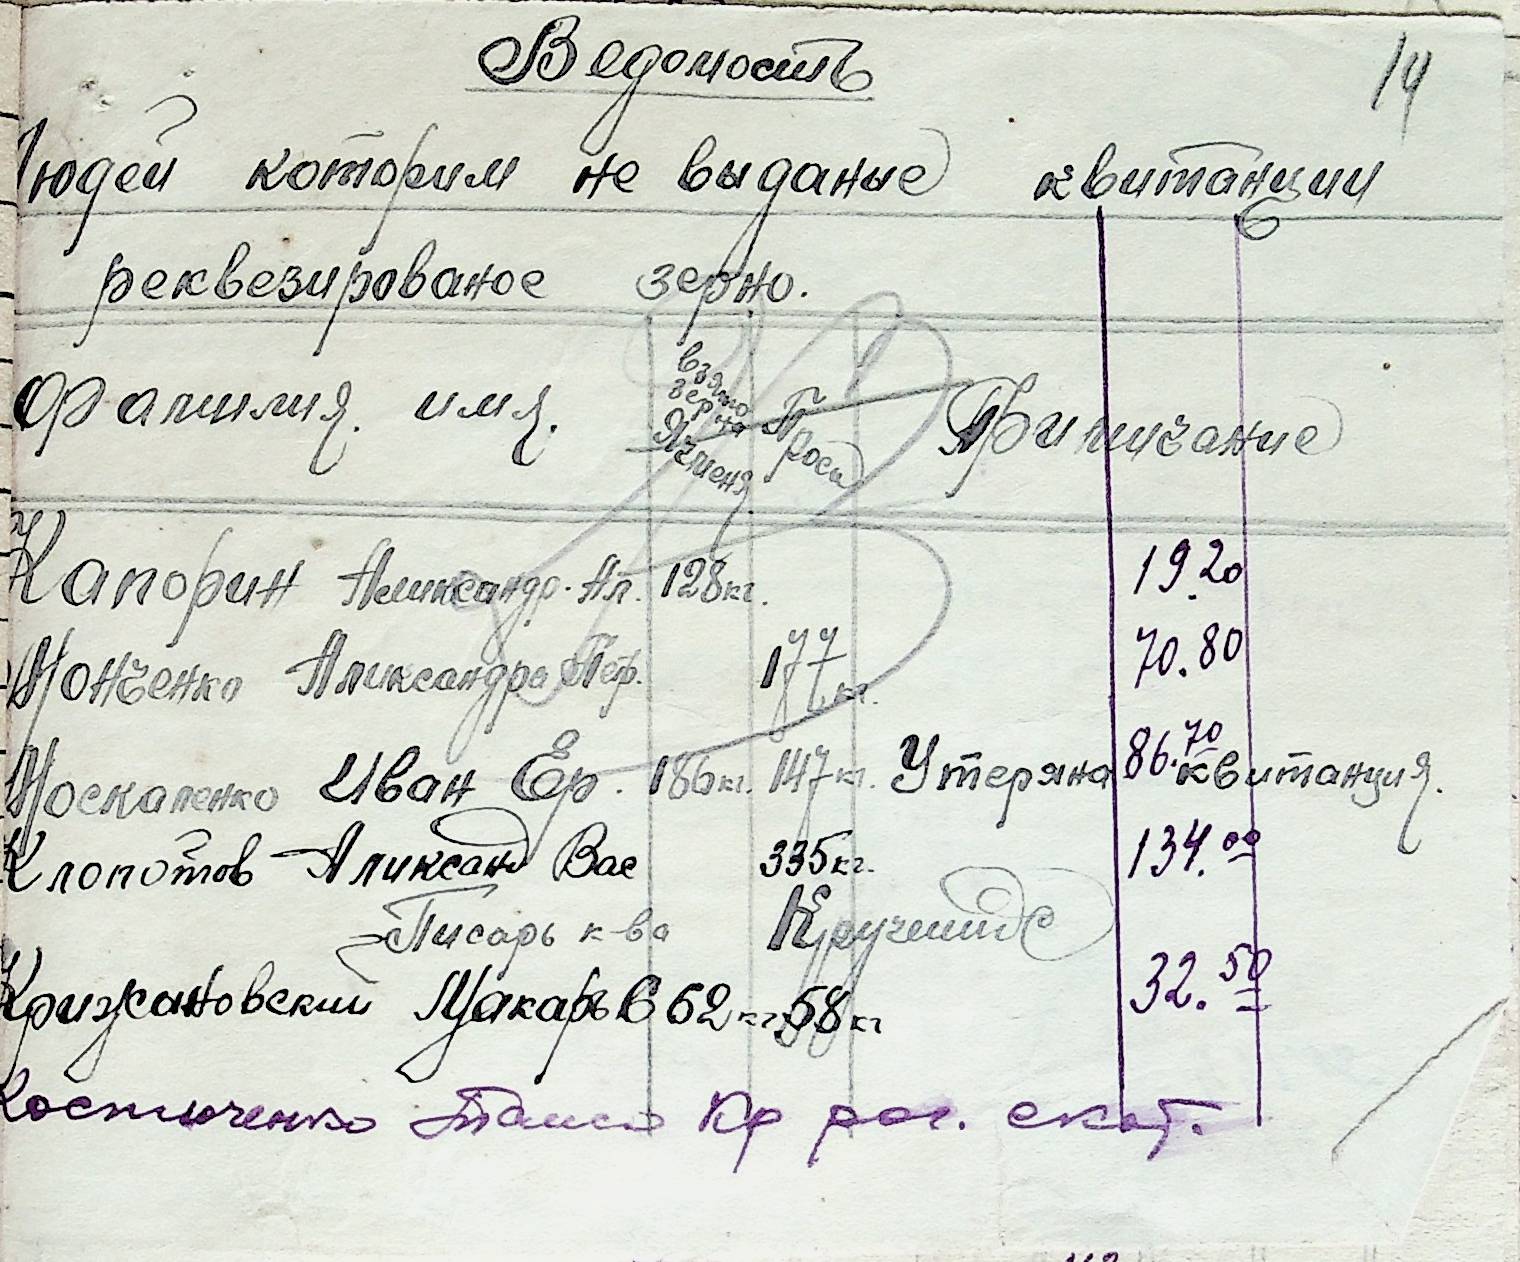 Ведомость
14
Людей которим не выданые квитанции
реквезированое зерно.
Фамилия. имя. взято зерна Ячменя Проса Примичание
Капорин Аликсандр. Ал. 128 кг. 19.20
Монченко Аликсандра Пер. 177 кг. 70.80
Москаленко Иван Ер. 186 кг. 147 кг. Утеряна 86.70 квитанция.
Клопотов Аликсанд Вас 335 кг. 134.00
Писарь к-ва
Крижановский Макарь С 62 кг 58 кг 32.50
Костюченко Таисо Кр рог. скот.